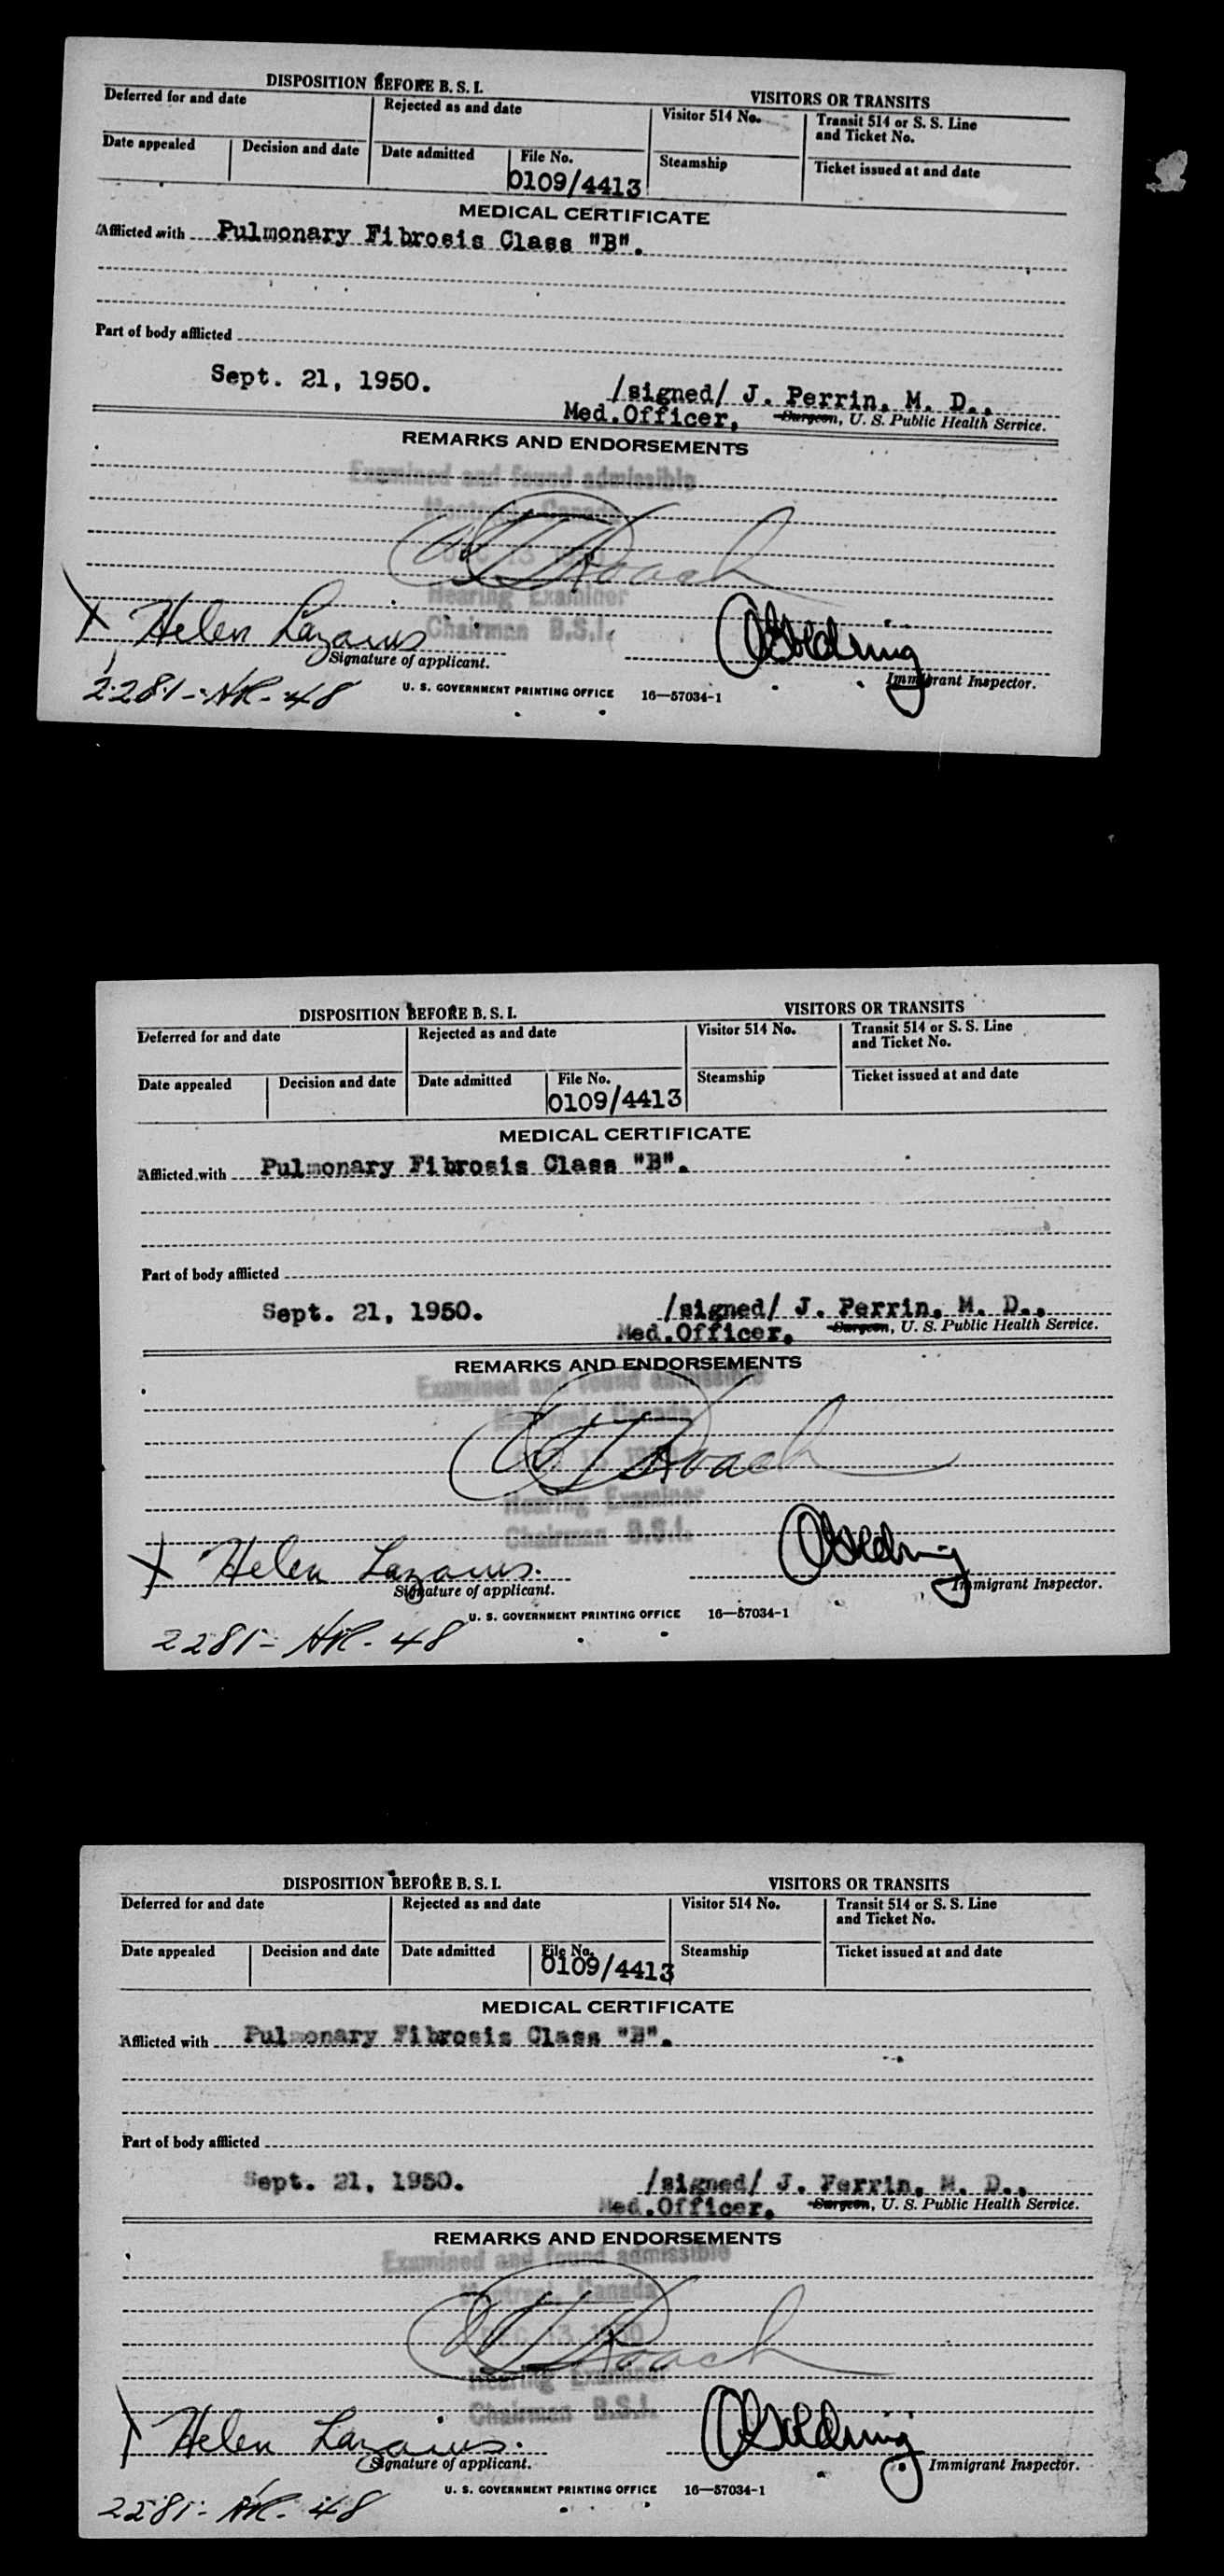 DISPOSITION BEFORE B. S. I.
VISITORS OR TRANSITS
Deferred for and date
Rejected as and date
Visitor 514 No.
Transit 514 or S. S. Line
and Ticket No.
Date appealed
Decision and date
Date admitted
File No.
0109/4413
Steamship
Ticket issued at and date
MEDICAL CERTIFICATE
Afflicted with Pulmonary Fibrosis Class "B".
Part of body afflicted
Sept. 21, 1950.
/signed/ J. Perrin, M. D.,
Med.Officer, Surgeon, U. S. Public Health Service.
REMARKS AND ENDORSEMENTS
Examined and found admissible
Montreal, Canada
Roach
Hearing Examiner
Chairman B.S.I.
X Helen Lazarus
Signature of applicant.
Immigrant Inspector.
2281-HR-48
U. S. GOVERNMENT PRINTING OFFICE 16—57034-1
DISPOSITION BEFORE B. S. I.
VISITORS OR TRANSITS
Deferred for and date
Rejected as and date
Visitor 514 No.
Transit 514 or S. S. Line
and Ticket No.
Date appealed
Decision and date
Date admitted
File No.
0109/4413
Steamship
Ticket issued at and date
MEDICAL CERTIFICATE
Afflicted with Pulmonary Fibrosis Class "B".
Part of body afflicted
Sept. 21, 1950.
/signed/ J. Perrin, M. D.,
Med.Officer, Surgeon, U. S. Public Health Service.
REMARKS AND ENDORSEMENTS
Examined and found admissible
Montreal, Canada
Roach
Hearing Examiner
Chairman B.S.I.
X Helen Lazarus.
Signature of applicant.
Immigrant Inspector.
U. S. GOVERNMENT PRINTING OFFICE 16—57034-1
2281-HR-48
DISPOSITION BEFORE B. S. I.
VISITORS OR TRANSITS
Deferred for and date
Rejected as and date
Visitor 514 No.
Transit 514 or S. S. Line
and Ticket No.
Date appealed
Decision and date
Date admitted
File No.
0109/4413
Steamship
Ticket issued at and date
MEDICAL CERTIFICATE
Afflicted with Pulmonary Fibrosis Class "B".
Part of body afflicted
Sept. 21, 1950.
/signed/ J. Perrin, M. D.,
Med.Officer, Surgeon, U. S. Public Health Service.
REMARKS AND ENDORSEMENTS
Examined and found admissible
Montreal, Canada
DEC 13 1950
Roach
Hearing Examiner
Chairman B.S.I.
X Helen Lazarus.
Signature of applicant.
Immigrant Inspector.
U. S. GOVERNMENT PRINTING OFFICE 16—57034-1
2281-HR-48